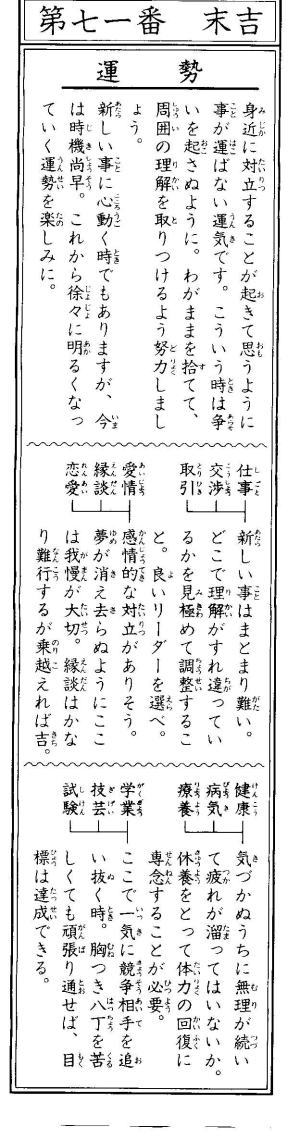 第七一番　末吉
運勢
身近に対立することが起きて思うように
事が運ばない運気です。こういう時は争
いを起さぬように。わがままを捨てて、
周囲の理解を取りつけるよう努力しまし
ょう。
新しい事に心動く時でもありますが、今
は時機尚早。これから徐々に明るくなっ
ていく運勢を楽しみに。
仕事
交渉
取引
新しい事はまとまり難い。
どこで理解がすれ違ってい
るかを見極めて調整するこ
と。良いリーダーを選べ。
愛情
縁談
恋愛
感情的な対立がありそう。
夢が消え去らぬようにここ
は我慢が大切。縁談はかな
り難行するが乗越えれば吉。
健康
病気
療養
気づかぬうちに無理が続い
て疲れが溜ってはいないか。
休養をとって体力の回復に
専念することが必要。
学業
技芸
試験
ここで一気に競争相手を追
い抜く時。胸つき八丁を苦
しくても頑張り通せば、目
標は達成できる。